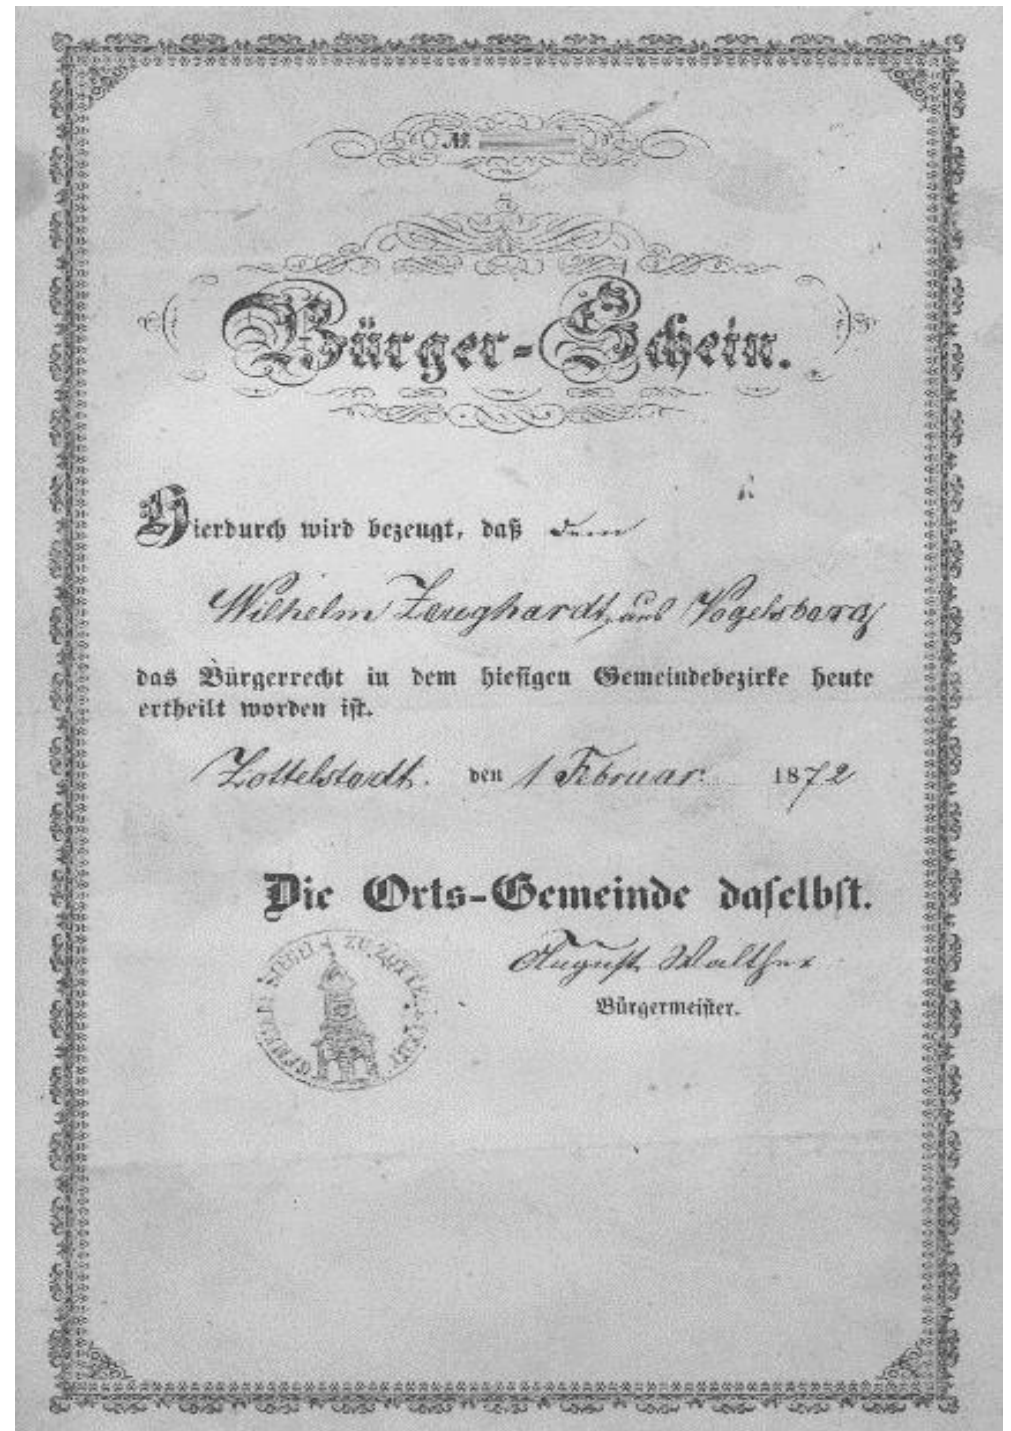 №
Bürger-Schein.
Hierdurch wird bezeugt, daß dem
Wilhelm Zeughardt, aus Vogelsberg
das Bürgerrecht in dem hiesigen Gemeindebezirke heute
ertheilt worden ist.
Zottelstedt. den 1 Februar 1872
Die Orts-Gemeinde daselbst.
August Walther
Bürgermeister.
SIEGEL ZU ZOTTELSTEDT